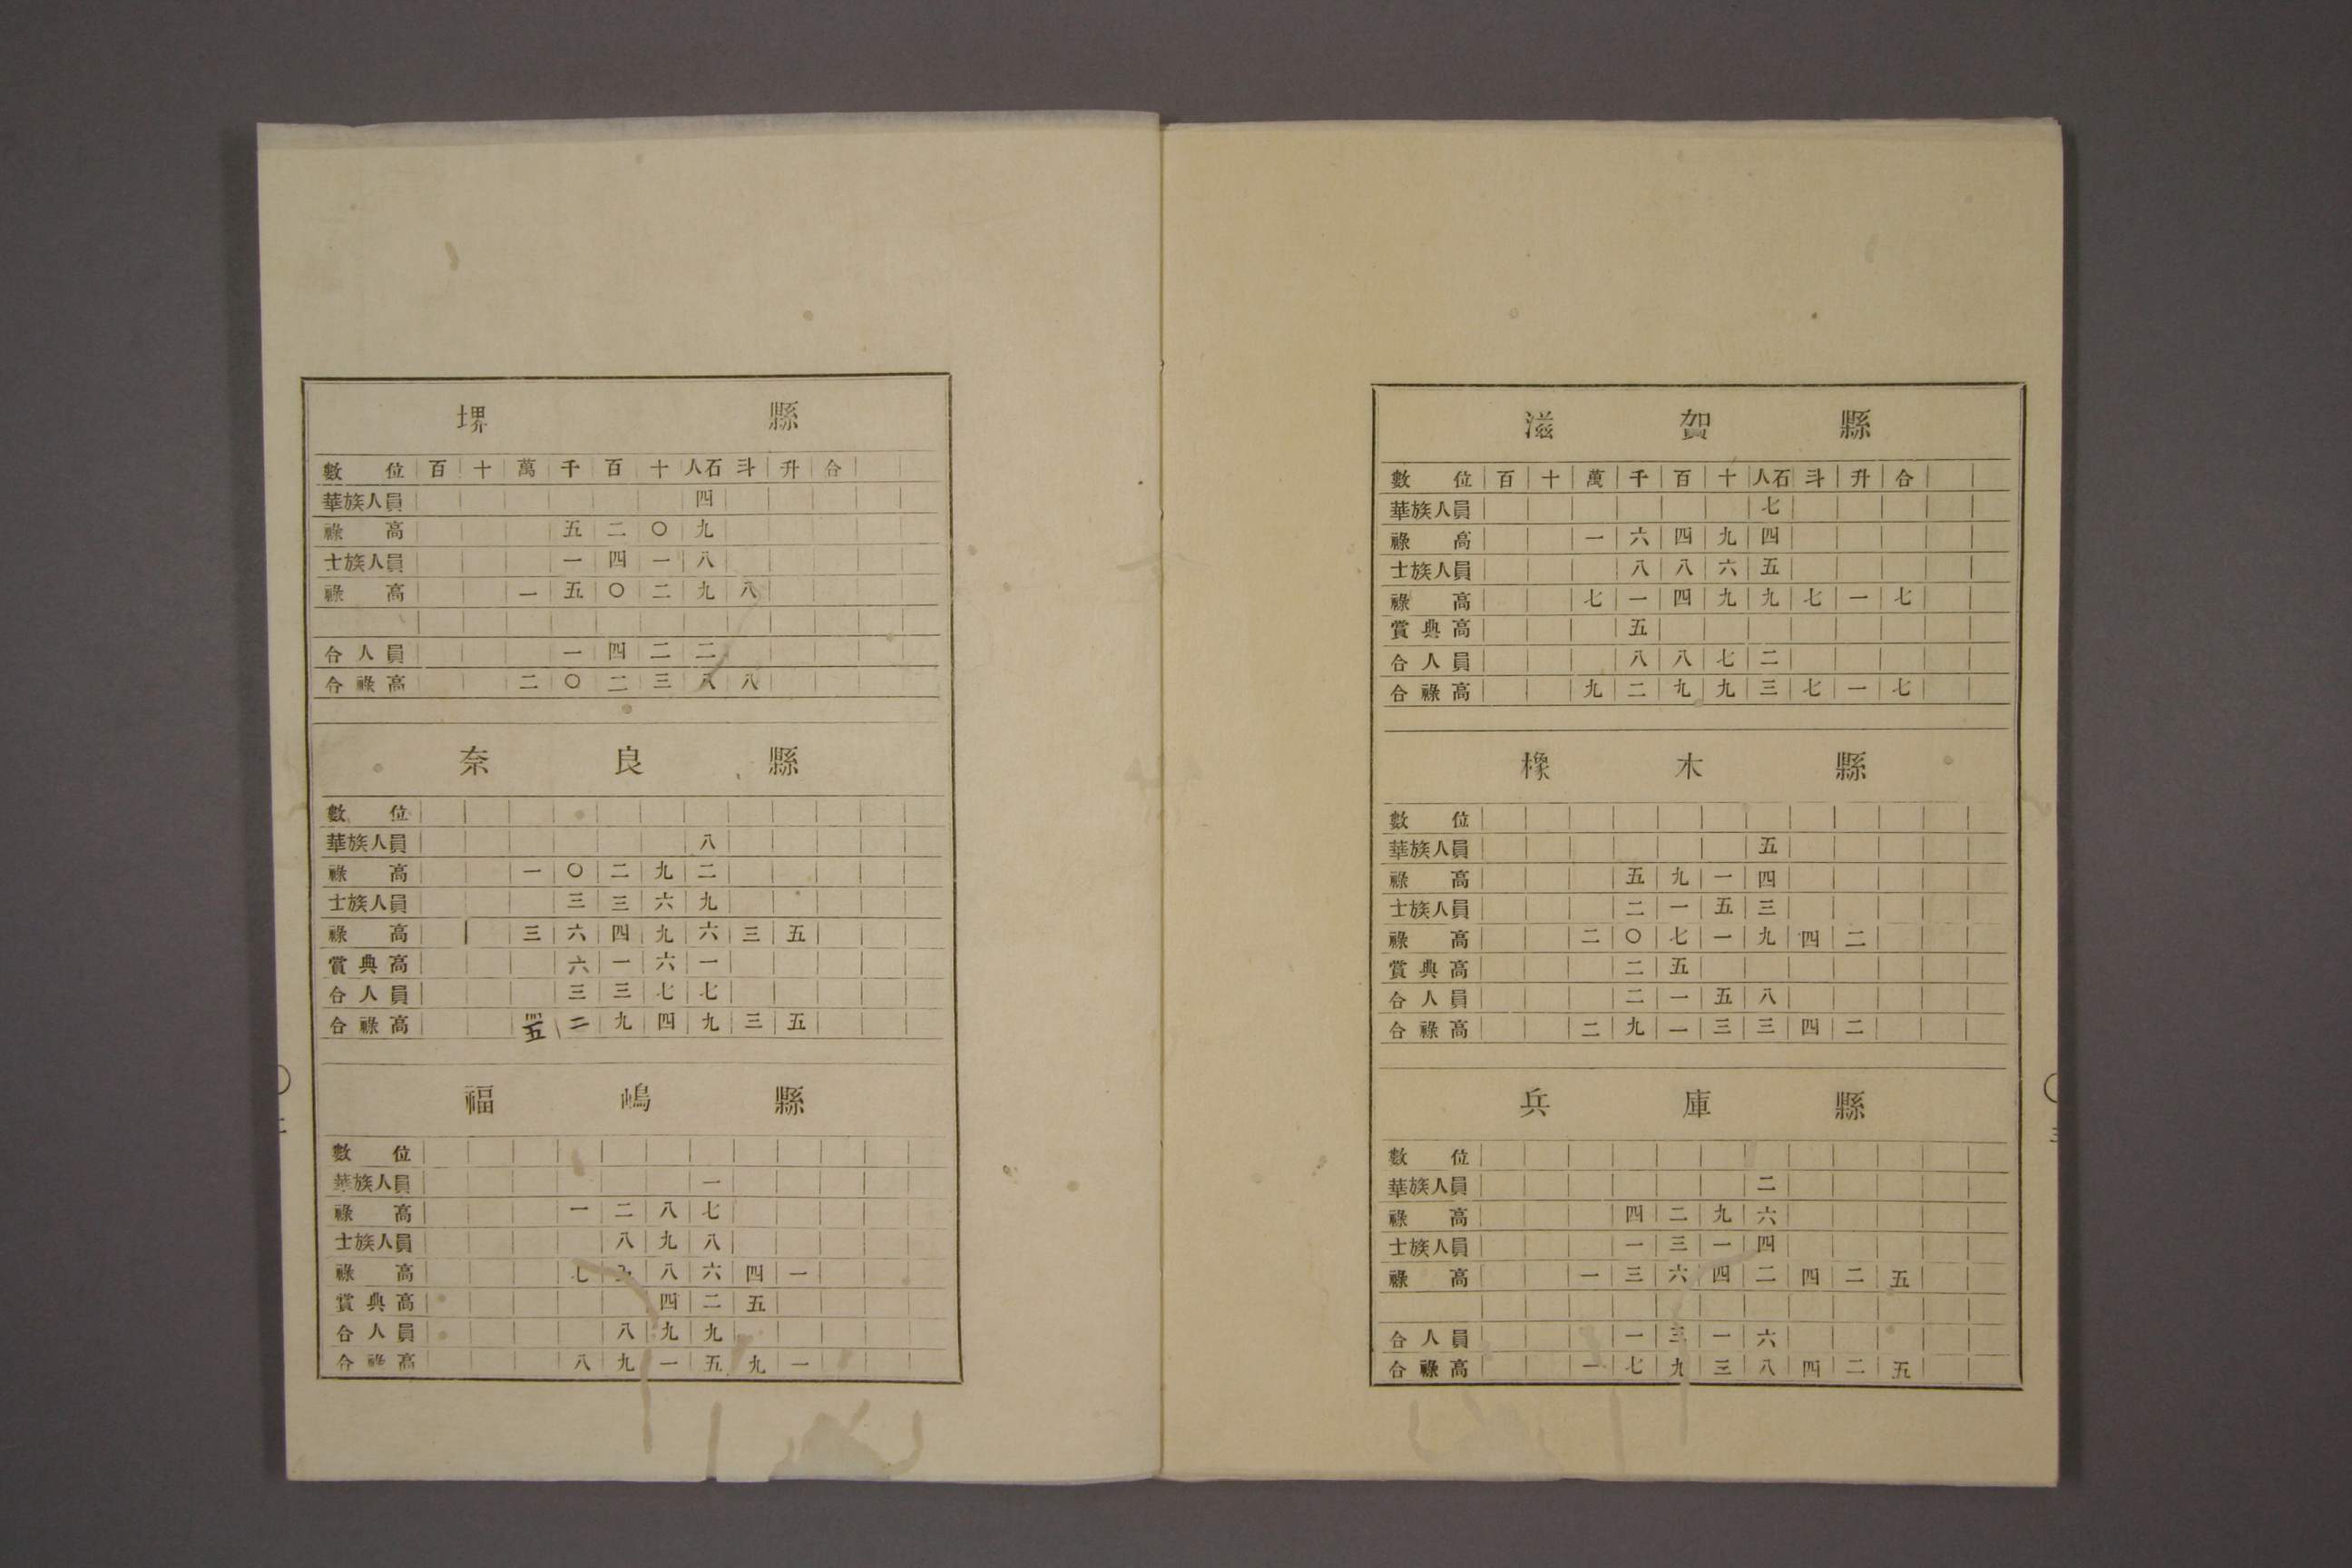 滋賀縣
數位 百 十 萬 千 百 十 人石 斗 升 合
華族人員 七
祿高 一 六 四 九 四
士族人員 八 八 六 五
祿高 七 一 四 九 九 七 一 七
賞典高 五
合人員 八 八 七 二
合祿高 九 二 九 九 三 七 一 七
橡木縣
數位
華族人員 五
祿高 五 九 一 四
士族人員 二 一 五 三
祿高 二 〇 七 一 九 四 二
賞典高 二 五
合人員 二 一 五 八
合祿高 二 九 一 三 三 四 二
兵庫縣
數位
華族人員 二
祿高 四 二 九 六
士族人員 一 三 一 四
祿高 一 三 六 四 二 四 二 五
合人員 一 三 一 六
合祿高 一 七 九 三 八 四 二 五
堺縣
數位 百 十 萬 千 百 十 人石 斗 升 合
華族人員 四
祿高 五 二 〇 九
士族人員 一 四 一 八
祿高 一 五 〇 二 九 八
合人員 一 四 二 二
合祿高 二 〇 二 三 八 八
奈良縣
數位
華族人員 八
祿高 一 〇 二 九 二
士族人員 三 三 六 九
祿高 三 六 四 九 六 三 五
賞典高 六 一 六 一
合人員 三 三 七 七
合祿高 五 二 九 四 九 三 五
福嶋縣
數位
華族人員 一
祿高 一 二 八 七
士族人員 八 九 八
祿高 七 五 八 六 四 一
賞典高 四 二 五
合人員 八 九 九
合祿高 八 九 一 五 九 一